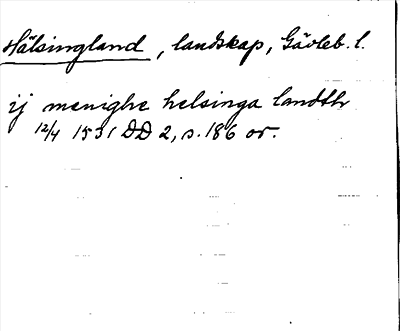 Hälsingland, landskap, Gävleb. l.
ij menighe helsinga landth
12/4 1531 DD 2, s. 186 or.